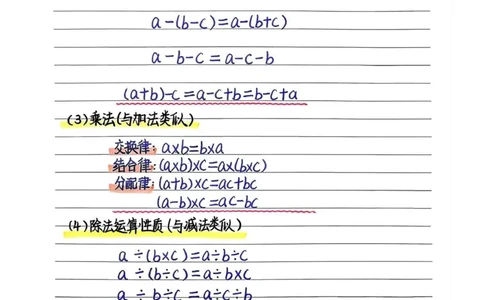 a-(b-c)=a-(b+c)
a-b-c=a-c-b
(a+b)-c=a-c+b=b-c+a
(3)乘法(与加法类似)
交换律:a×b=b×a
结合律:(a×b)×c=a×(b×c)
分配律:(a+b)×c=ac+bc
(a-b)×c=ac-bc
(4)除法运算性质(与减法类似)
a÷(b×c)=a÷b÷c
a÷(b÷c)=a÷b×c
a÷b÷c=a÷c÷b